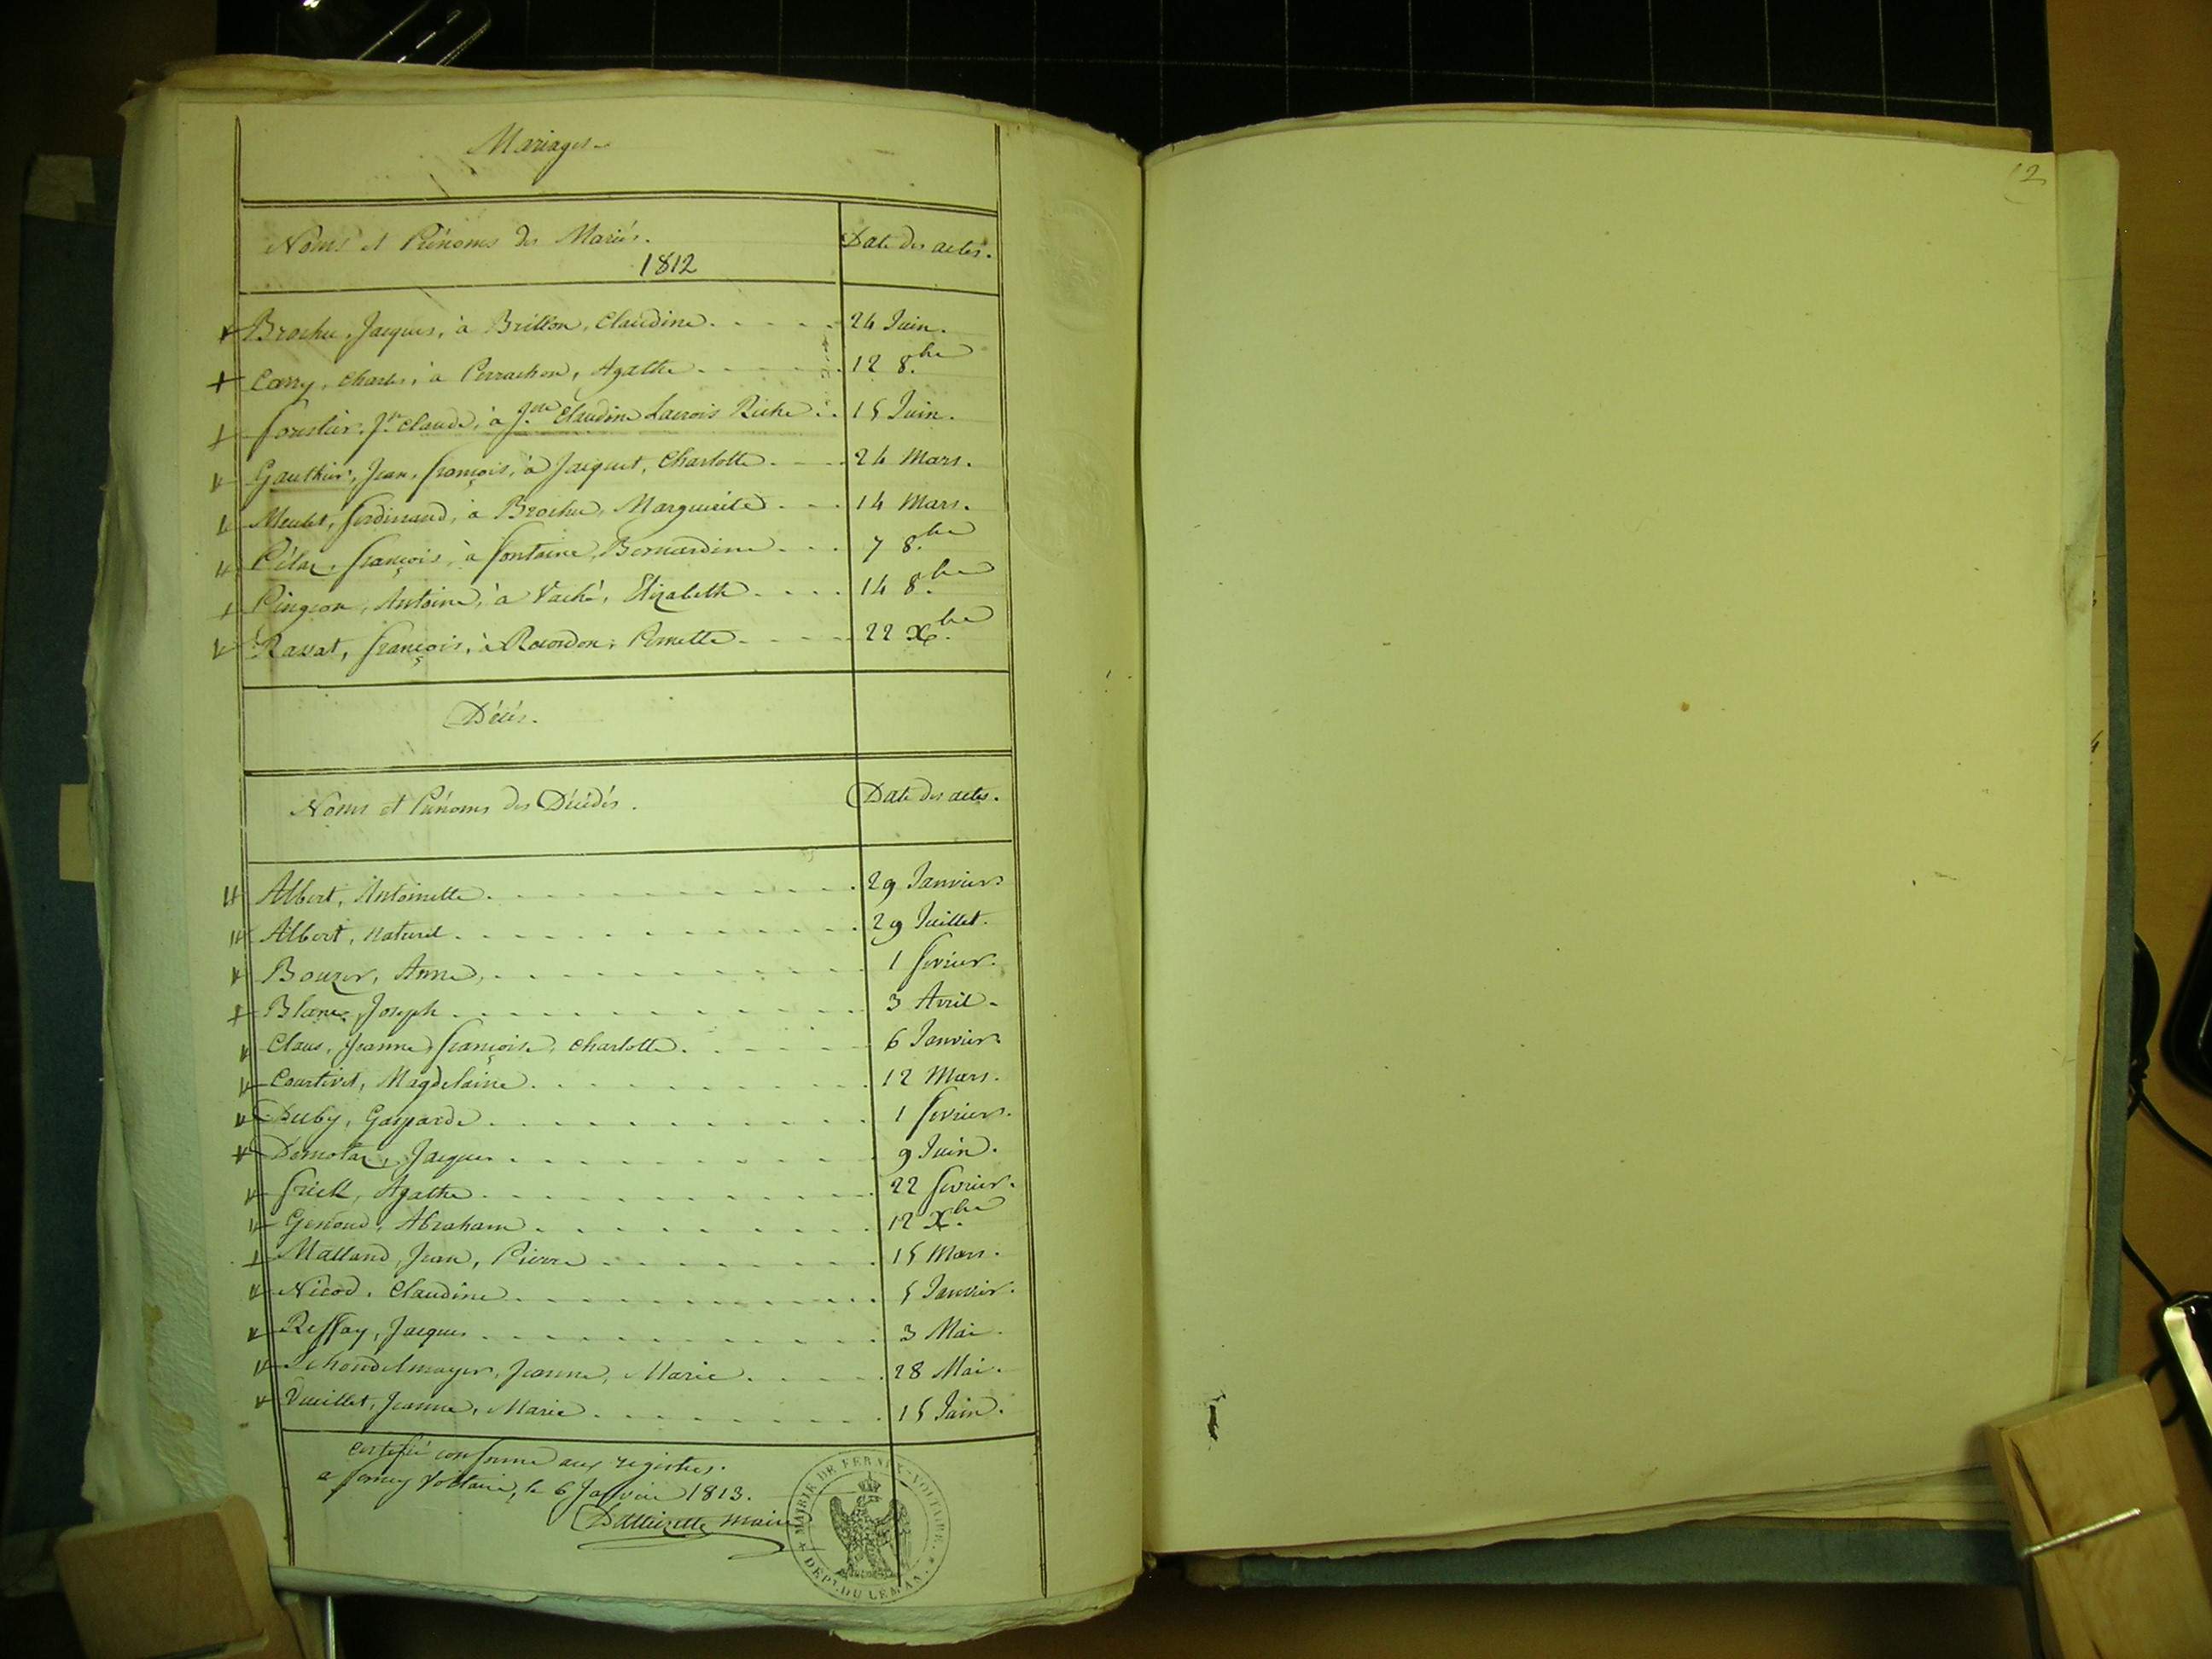 Mariages
Noms et Prénoms des Mariés.
1812
Date des actes.
Brochu, Jacques, à Brillon, Claudine. 24 Juin.
Carry, Charles, à Perrachon, Agathe 12 8.bre
forestier, Jn Claude, à Jne Claudine Lacrois Riche 15 Juin.
Gauthier, Jean, françois, à Jacquet, Charlotte. 24 Mars.
Meulet, ferdinand, à Brochu, Marguerite 14 Mars.
Pélaz, françois, à fontaine, Bernardine 7 8.bre
Pingeon, Antoine, à Vaché, Elizabeth 14 8.bre
Ravat, françois, à Rocordon, Pernette 22 X.bre
Décès.
Noms et Prénoms des Décédés.
Date des actes.
Albert, Antoinette. 29 Janvier
Albert, naturel. 29 Juillet.
Bouzer, Anne, 1 fevrier.
Blanc, Joseph 3 Avril.
Claus, Jeanne, françoise, Charlotte. 6 Janvier.
Courtivet, Magdelaine. 12 Mars.
Duby, Gasparde 1 fevrier.
Demotaz, Jacques. 9 Juin.
frick, Agathe. 22 fevrier.
Genoud, Abraham 12 X.bre
Malland, Jean, Pierre 15 Mars.
Nicod, Claudine 5 Janvier.
Reffay, Jacques 3 Mai.
Schondelmayer, Jeanne, Marie 28 Mai.
Vuillet, Jeanne, Marie 15 Juin.
certifié conforme aux registres.
a ferney Voltaire, le 6 Janvier 1813.
maire
MAIRIE DE FERNEY-VOLTAIRE.
DEPT. DU LEMAN.
12